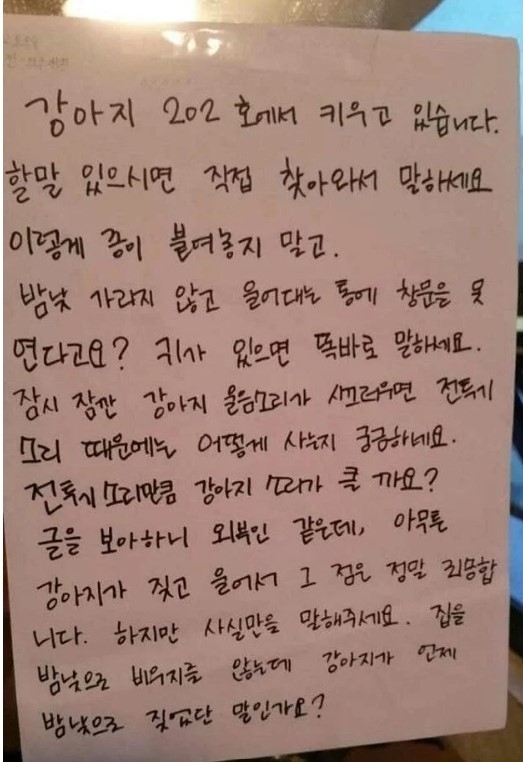 강아지 202 호에서 키우고 있습니다.
할말 있으시면 직접 찾아와서 말하세요
이렇게 종이 붙여놓지 말고.
밤낮 가라지 않고 울어대는 통에 창문을 못
연다고요? 귀가 있으면 똑바로 말하세요.
잠시 잠깐 강아지 울음소리가 시끄러우면 전투기
소리 때문에는 어떻게 사는지 궁금하네요.
전투기 소리만큼 강아지 소리가 클 까요?
글을 보아하니 외부인 같은데, 아무튼
강아지가 짖고 울어서 그 점은 정말 죄송합
니다. 하지만 사실만을 말해주세요. 집을
밤낮으로 비우지를 않는데 강아지가 언제
밤낮으로 짖었단 말인가요?